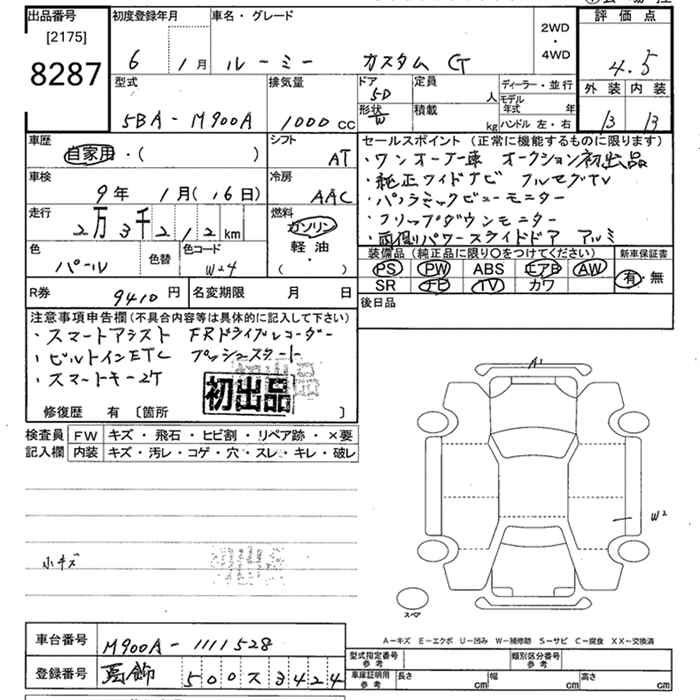 出品番号 初度登録年月 車名・グレード 2WD・4WD 評価点
[2175]
8287
6 1月 ルーミー カスタム G 4.5
型式 排気量 ドア 定員 人 ディーラー・並行 外装 内装
5BA-M900A 1000 cc 5D 形状 W 積載 kg モデル年式 年 ハンドル 左・右 13 13
車歴 自家用・( ) シフト AT
車検 9年 1月(16日) 冷房 AAC
走行 2万3千212km 燃料 ガソリン 軽油・( )
色 パール 色替 色コード W24
R券 9410円 名変期限 月 日
セールスポイント(正常に機能するものに限ります)
・ワンオーナー車 オークション初出品
・純正ワイドナビ フルセグTV
・パノラミックビューモニター
・フリップダウンモニター
・両側パワースライドドア アルミ
装備品(純正品に限り○をつけてください) 新車保証書
PS PW ABS エアB AW 有・無
SR TV カワ
後日品
注意事項申告欄(不具合内容等は具体的に記入して下さい)
・スマートアシスト FRドライブレコーダー
・ビルトインETC プッシュスタート
・スマートキー2ケ
初出品
修復歴 有〔箇所 〕
検査員 FW キズ・飛石・ヒビ割・リペア跡・×要
記入欄 内装 キズ・汚レ・コゲ・穴・スレ・キレ・破レ
A1
W2
小キズ
スペア
A-キズ E-エクボ U-凹み W-補修跡 S-サビ C-腐食 XX-交換済
車台番号 M900A-1111528
登録番号 葛飾 500ス3424
型式指定番号 参考 類別区分番号 参考
車庫証明用 参考 長さ cm 幅 cm 高さ cm